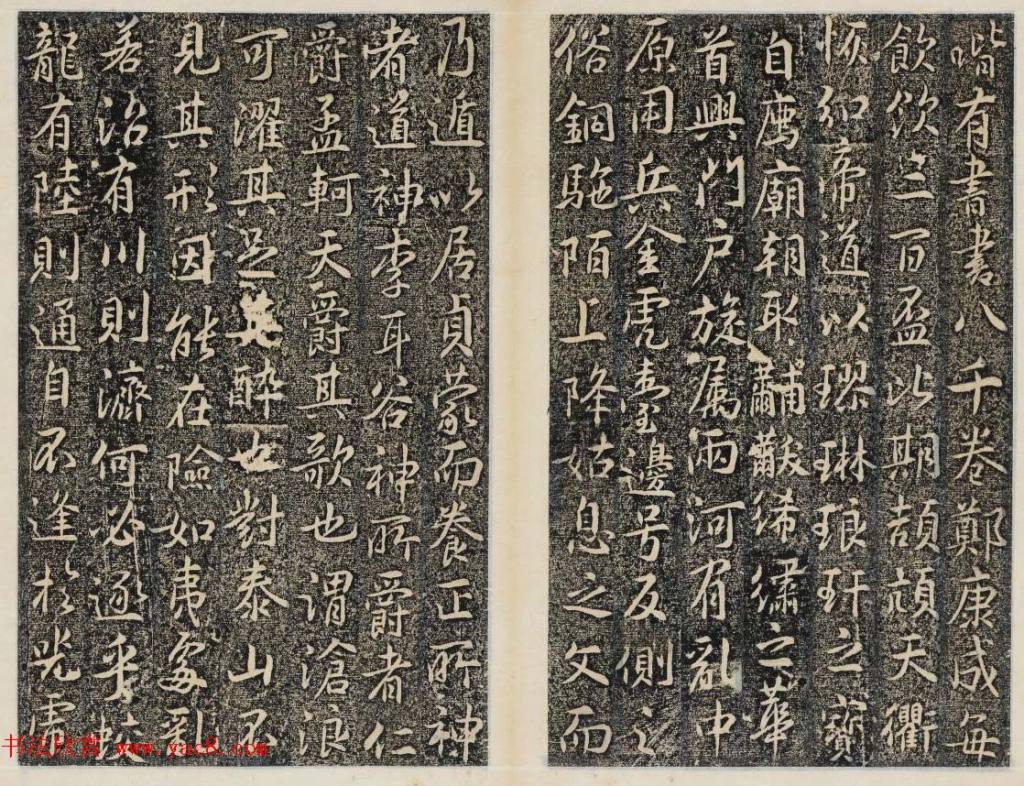 喈有書書八千卷鄭康成每
飲飲三百盃比期頡頏天衢
恢 帝道以璆琳琅玕之寶
自薦廟朝取黼黻絺繡之華
首興門户旋属兩河有亂中
原用兵金虎臺邊号反側之
俗銅駞陌上降姑息之文而
乃遁以居貞蒙而養正所神
者道神李耳谷神所爵者仁
爵孟軻天爵其歌也謂滄浪
可濯其足其醉也對泰山不
見其形因能在險如夷處亂
若治有川則濟何必逐乎蛟
龍有陸則通自不逢於兕虎
书法欣赏 www.yac8.com